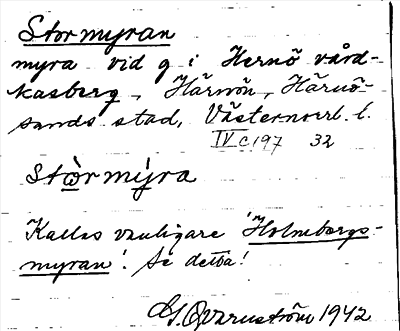 Stormyran
myra vid g i Hernö vård-
kasberg, Härnön, Härnö-
sands stad, Västernorrl. l.
IV c 197 32
Stòrmýra
Kallas vanligare 'Holmbergs-
myran'. Se detta!
G. Qvarnström 1942